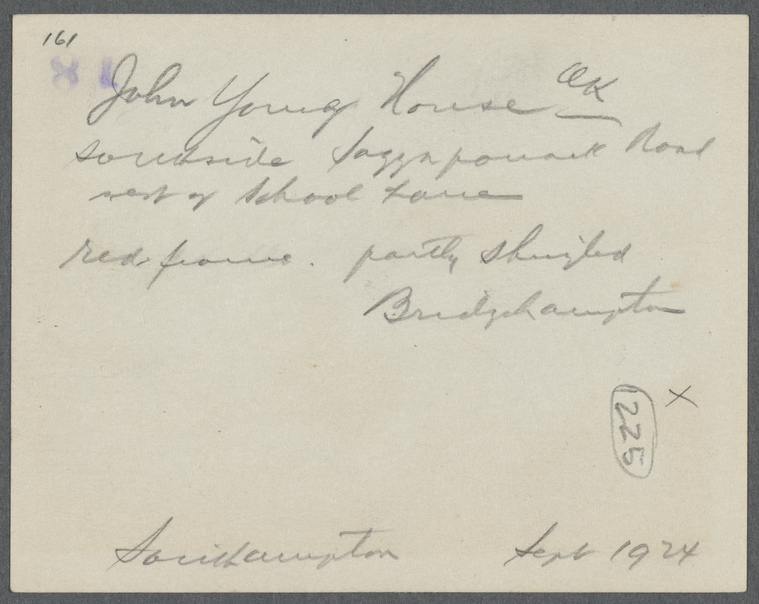 161
John Young House OK
southside Saggaponack Road
west of School Lane
red frame. partly shingled
Bridgehampton
X
1225
Southampton Sept 1924